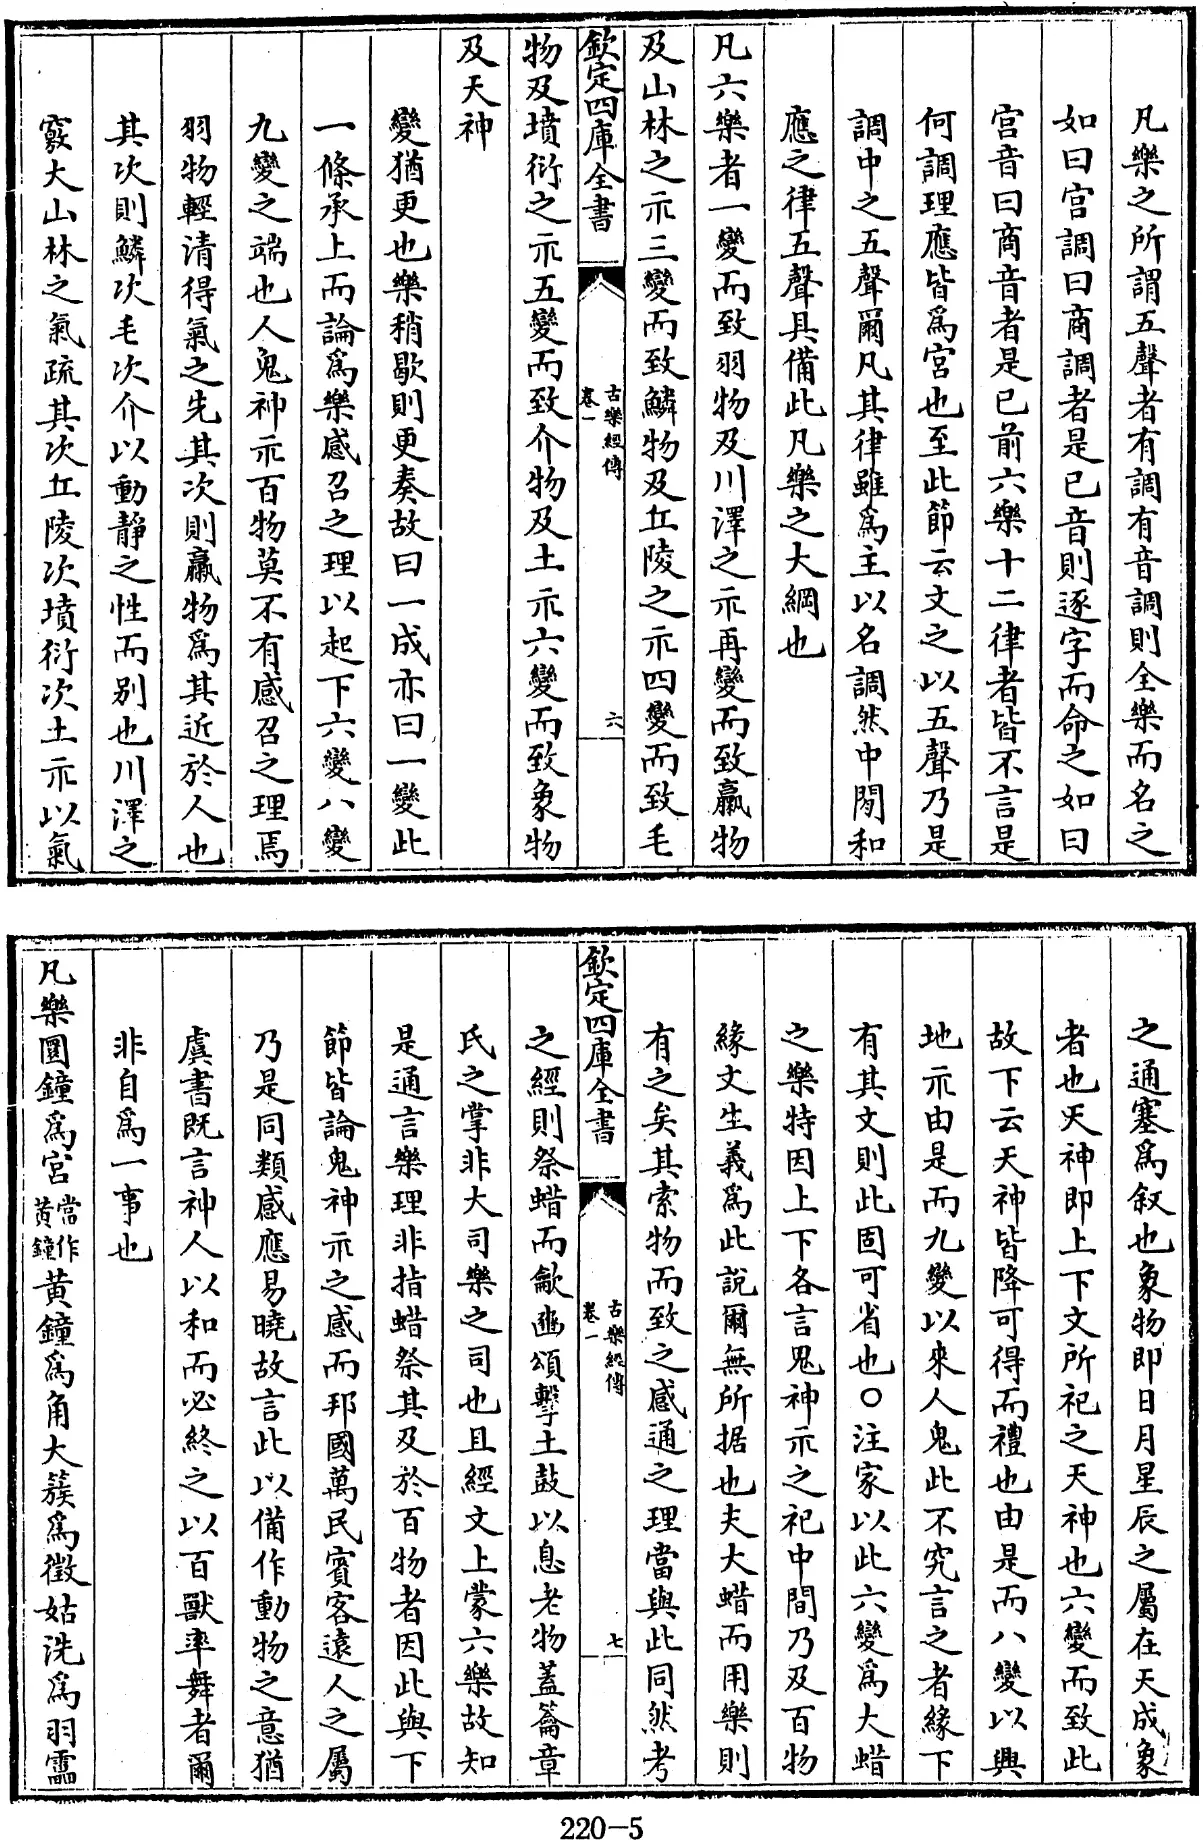 凡樂之所謂五聲者有調有音調則全樂而名之
如曰宫調曰商調者是已音則逐字而命之如曰
宫音曰商音者是已前六樂十二律者皆不言是
何調理應皆爲宫也至此節云文之以五聲乃是
調中之五聲爾凡其律雖爲主以名調然中間和
應之律五聲具備此凡樂之大綱也
凡六樂者一變而致羽物及川澤之示再變而致羸物
及山林之示三變而致鱗物及丘陵之示四變而致毛
欽定四庫全書
古樂經傳
卷一
六
物及墳衍之示五變而致介物及土示六變而致象物
及天神
變猶更也樂稍歇則更奏故曰一成亦曰一變此
一條承上而論爲樂感召之理以起下六變八變
九變之端也人鬼神示百物莫不有感召之理焉
羽物輕清得氣之先其次則羸物爲其近於人也
其次則鱗次毛次介以動靜之性而别也川澤之
竅大山林之氣疏其次丘陵次墳衍次土示以氣
之通塞爲叙也象物即日月星辰之屬在天成象
者也天神即上下文所祀之天神也六變而致此
故下云天神皆降可得而禮也由是而八變以興
地示由是而九變以來人鬼此不究言之者緣下
有其文則此固可省也○注家以此六變爲大蜡
之樂特因上下各言鬼神示之祀中間乃及百物
緣文生義爲此說爾無所据也夫大蜡而用樂則
有之矣其索物而致之感通之理當與此同然考
欽定四庫全書
古樂經傳
卷一
七
之經則祭蜡而龡豳頌擊土鼓以息老物蓋籥章
氏之掌非大司樂之司也且經文上蒙六樂故知
是通言樂理非指蜡祭其及於百物者因此與下
節皆論鬼神示之感而邦國萬民賓客遠人之屬
乃是同類感應易曉故言此以備作動物之意猶
虞書既言神人以和而必終之以百獸率舞者爾
非自爲一事也
凡樂圜鐘爲宫當作黄鐘黄鐘爲角大簇爲徵姑洗爲羽靁
220-5